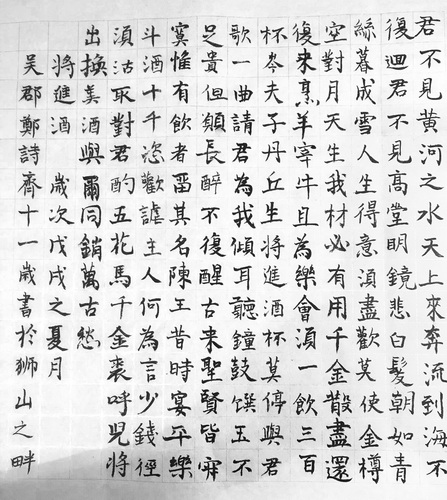 君不見黃河之水天上來奔流到海不
復迴君不見高堂明鏡悲白髮朝如青
絲暮成雪人生得意須盡歡莫使金樽
空對月天生我材必有用千金散盡還
復來烹羊宰牛且為樂會須一飲三百
杯岑夫子丹丘生將進酒杯莫停與君
歌一曲請君為我傾耳聽鐘鼓饌玉不
足貴但願長醉不復醒古来聖賢皆寂
寞惟有飲者留其名陳王昔時宴平樂
斗酒十千恣歡謔主人何為言少錢徑
須沽取對君酌五花馬千金裘呼兒將
出換美酒與爾同銷萬古愁
將進酒 歲次戊戌之夏月
吳郡鄭詩齋十一歲書於狮山之畔